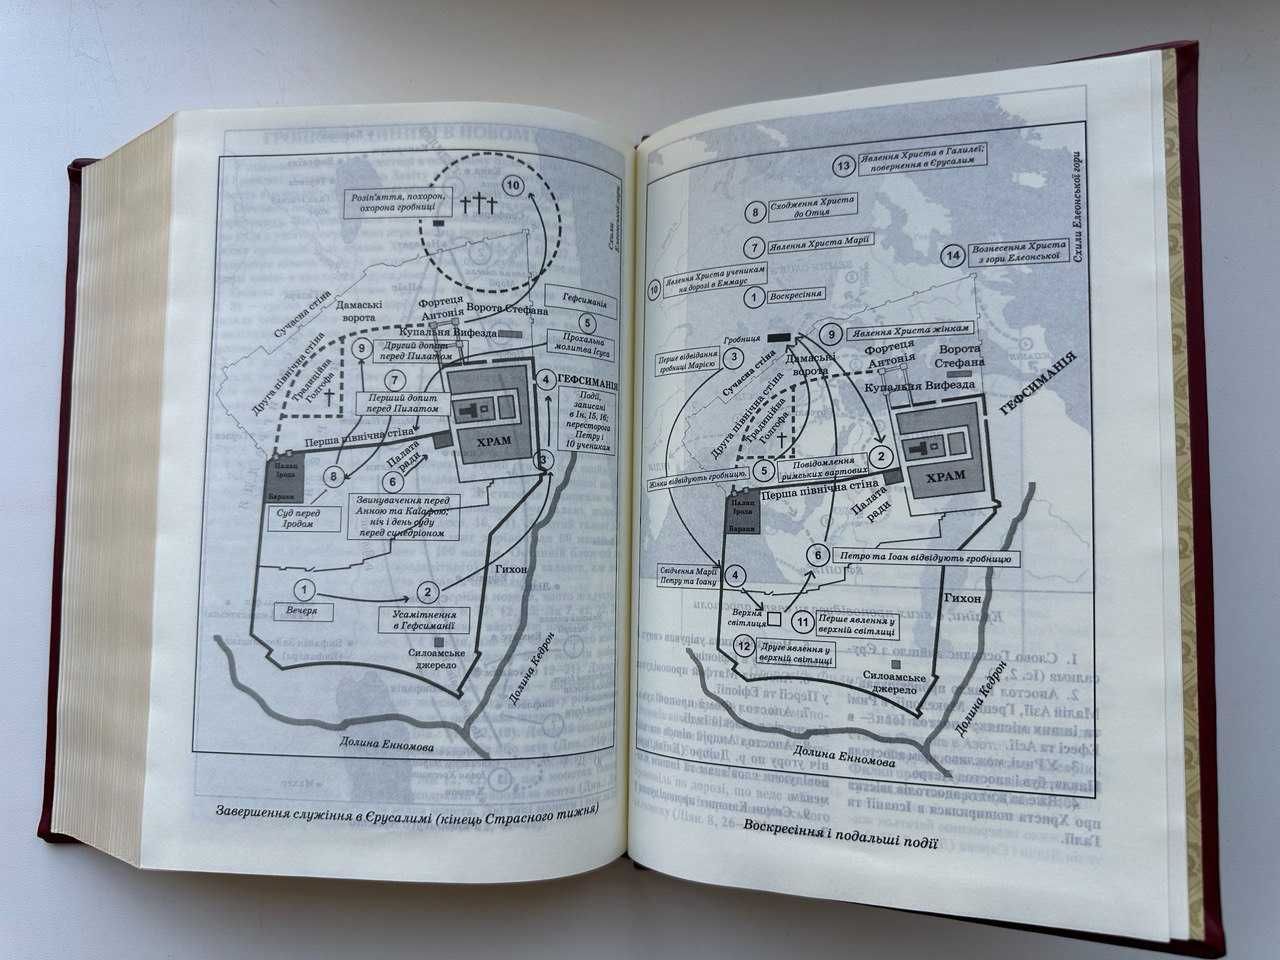 10
Розп'яття, похорон,
охорона гробниці
Схили
Елеонської гори
Сучасна стіна
Дамаські
ворота
Фортеця
Антонія
Ворота Стефана
Гефсиманія
5
Прохальна
молитва Ісуса
Купальня Вифезда
9
Другий допит
перед Пилатом
Друга північна стіна
Традиційна
Голгофа
7
Перший допит
перед Пилатом
4
ГЕФСИМАНІЯ
Події,
записані
в Ін. 15, 16;
пересторога
Петру і
10 ученикам
ХРАМ
Перша північна стіна
Палата
ради
3
Палац
Ірода
Бараки
8
6
Суд перед
Іродом
Звинувачення перед
Анною та Каїафою;
ніч і день суду
перед синедріоном
Гихон
1
Вечеря
2
Усамітнення
в Гефсиманії
Силоамське
джерело
Долина Кедрон
Долина Енномова
Завершення служіння в Єрусалимі (кінець Страсного тижня)
13
Явлення Христа в Галилеї;
повернення в Єрусалим
8
Сходження Христа
до Отця
7
Явлення Христа Марії
14
Вознесення Христа
з гори Елеонської
Схили Елеонської гори
10
Явлення Христа ученикам
на дорозі в Еммаус
1
Воскресіння
Гробниця
9
Явлення Христа жінкам
3
Перше відвідання
гробниці Марією
Сучасна стіна
Дамаські
ворота
Фортеця
Антонія
Ворота
Стефана
Купальня Вифезда
ГЕФСИМАНІЯ
Друга північна стіна
Традиційна
Голгофа
5
Жінки відвідують гробницю.
Повідомлення
римських вартових
2
ХРАМ
Перша північна стіна
Палата
ради
Палац
Ірода
Бараки
6
Петро та Іоан відвідують гробницю
Свідчення Марії
Петру та Іоану
4
Верхня
світлиця
11
Перше явлення у
верхній світлиці
12
Друге явлення у
верхній світлиці
Гихон
Силоамське
джерело
Долина Кедрон
Долина Енномова
Воскресіння і подальші події